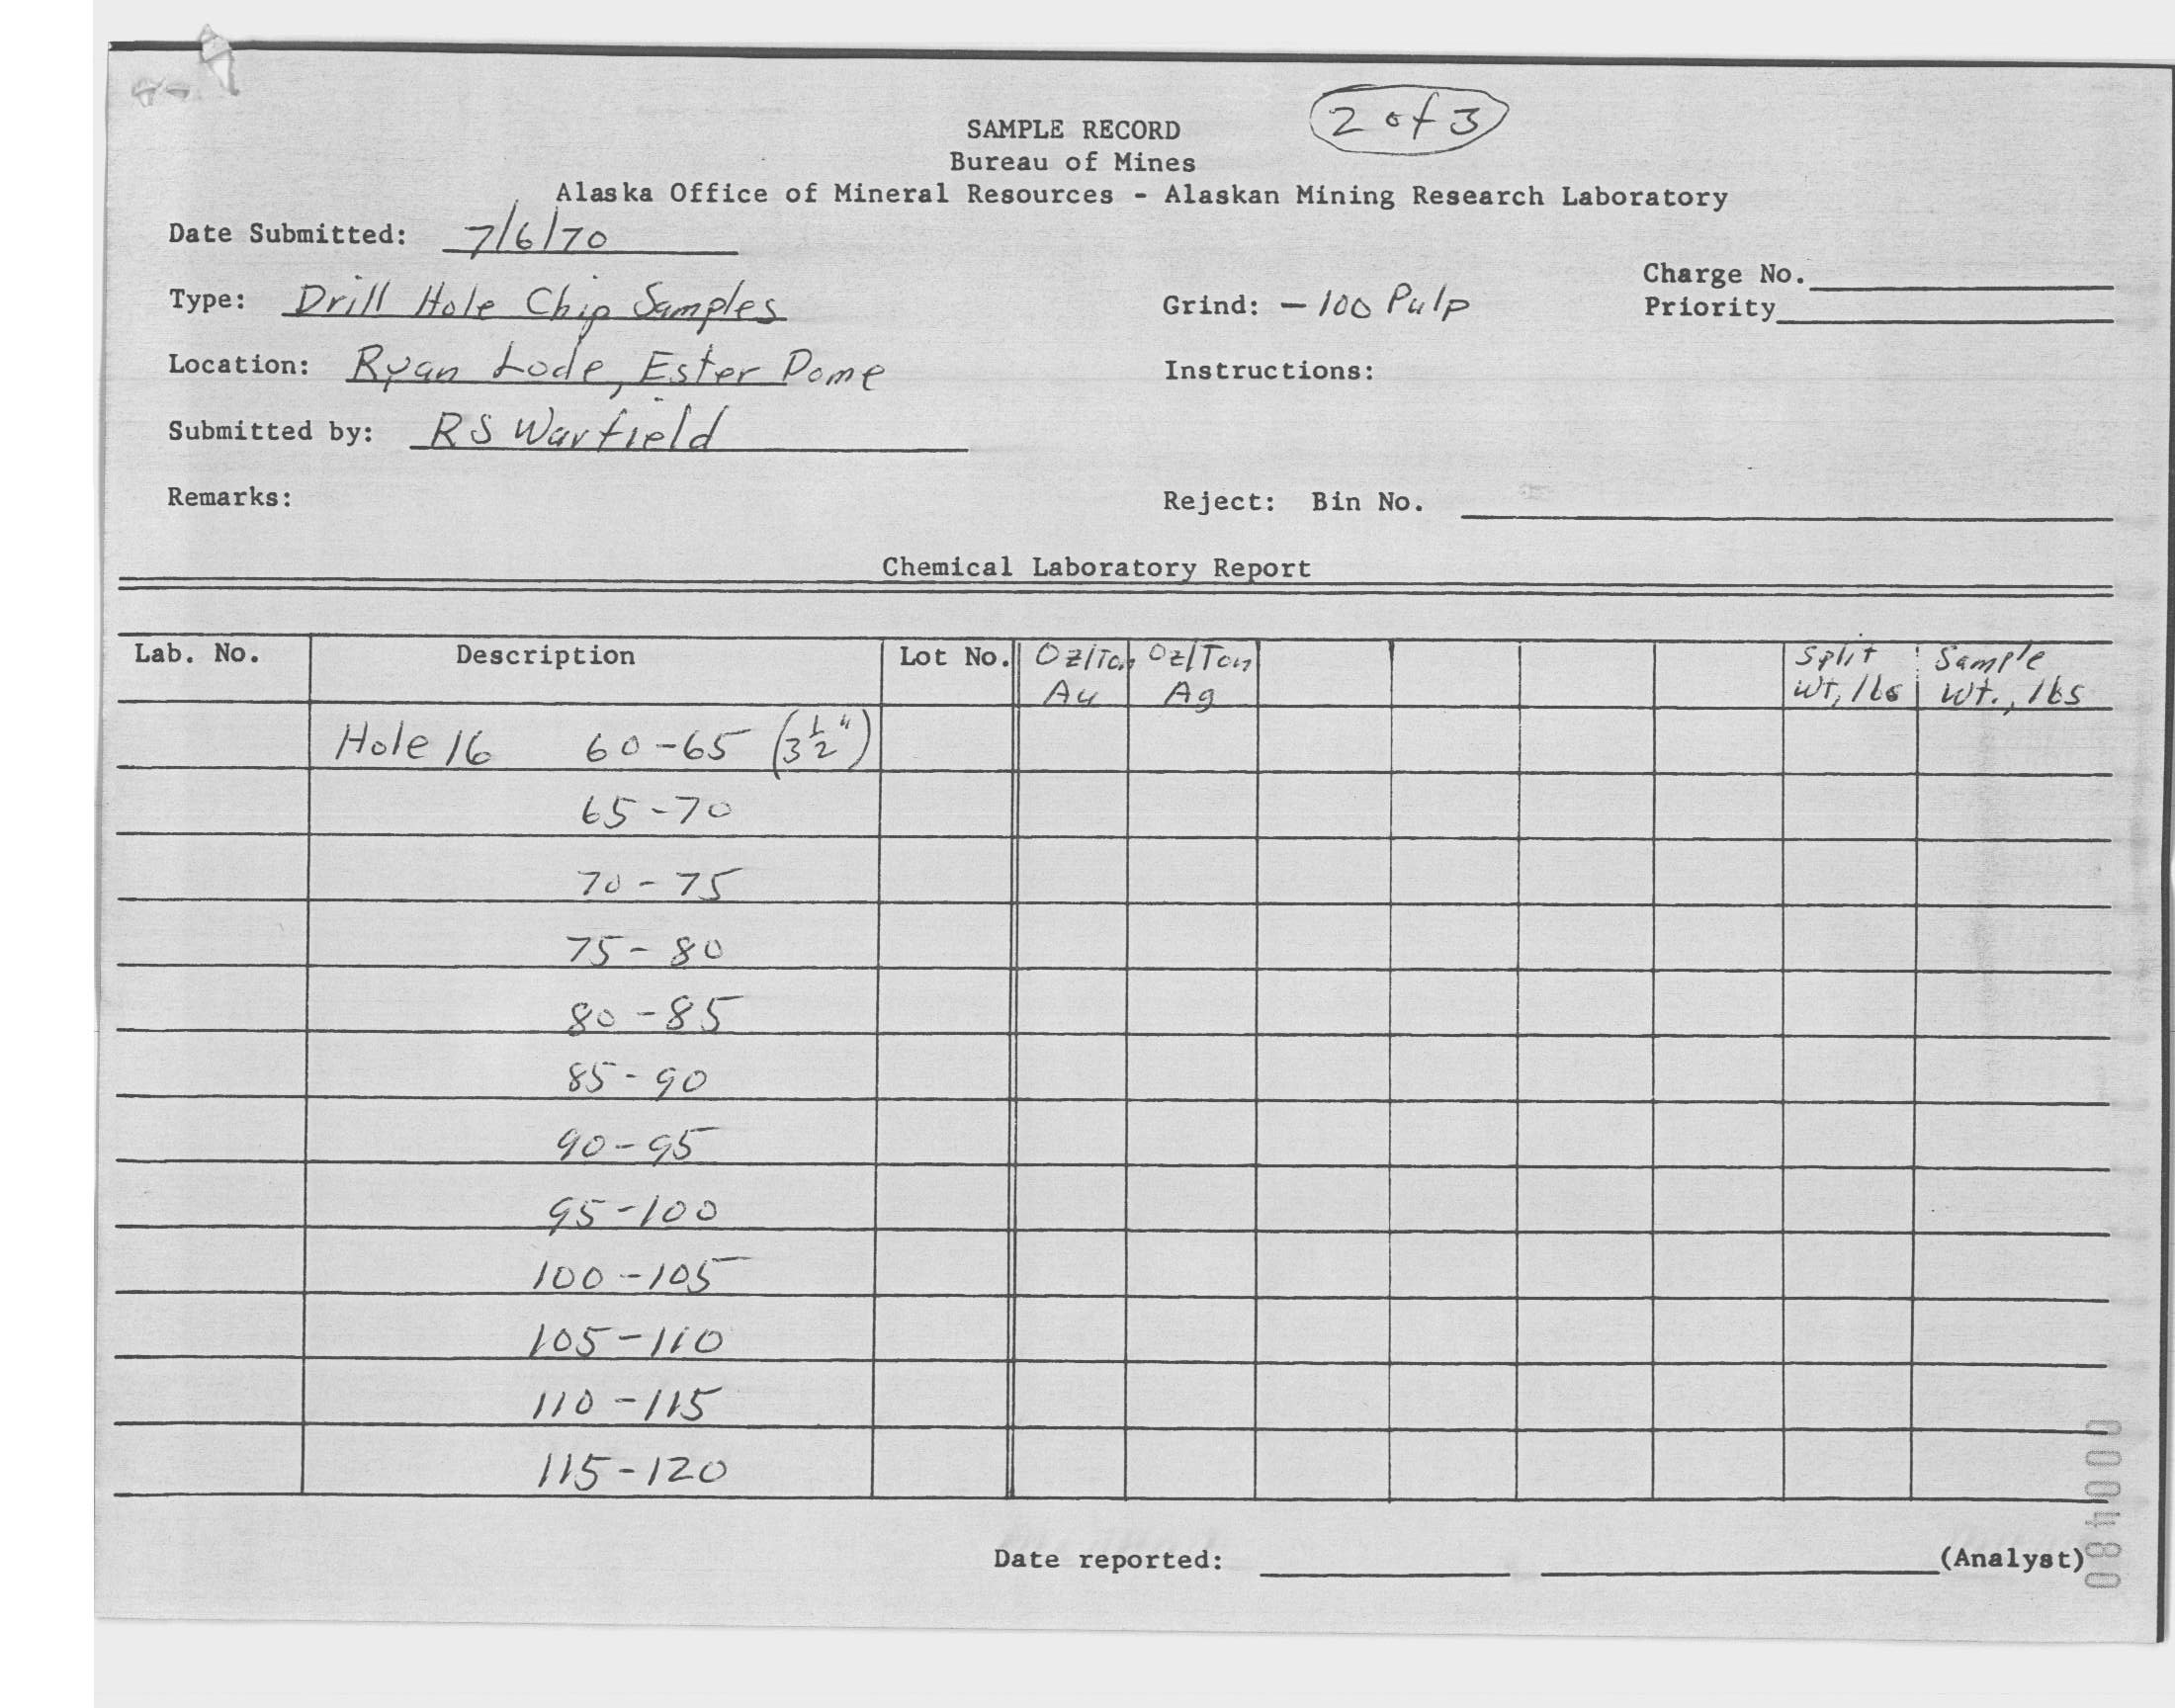 2 of 3
SAMPLE RECORD
Bureau of Mines
Alaska Office of Mineral Resources - Alaskan Mining Research Laboratory
Date Submitted: 7/6/70
Charge No.
Type: Drill Hole Chip Samples Grind: -100 Pulp Priority
Location: Ryan Lode, Ester Dome Instructions:
Submitted by: RS Warfield
Remarks: Reject: Bin No.
Chemical Laboratory Report
Lab. No. Description Lot No. Oz/Ton Oz/Ton Split Sample
Au Ag Wt, lbs Wt., lbs
Hole 16 60-65 (3 1/2")
65-70
70-75
75-80
80-85
85-90
90-95
95-100
100-105
105-110
110-115
115-120
Date reported: (Analyst)
0000480